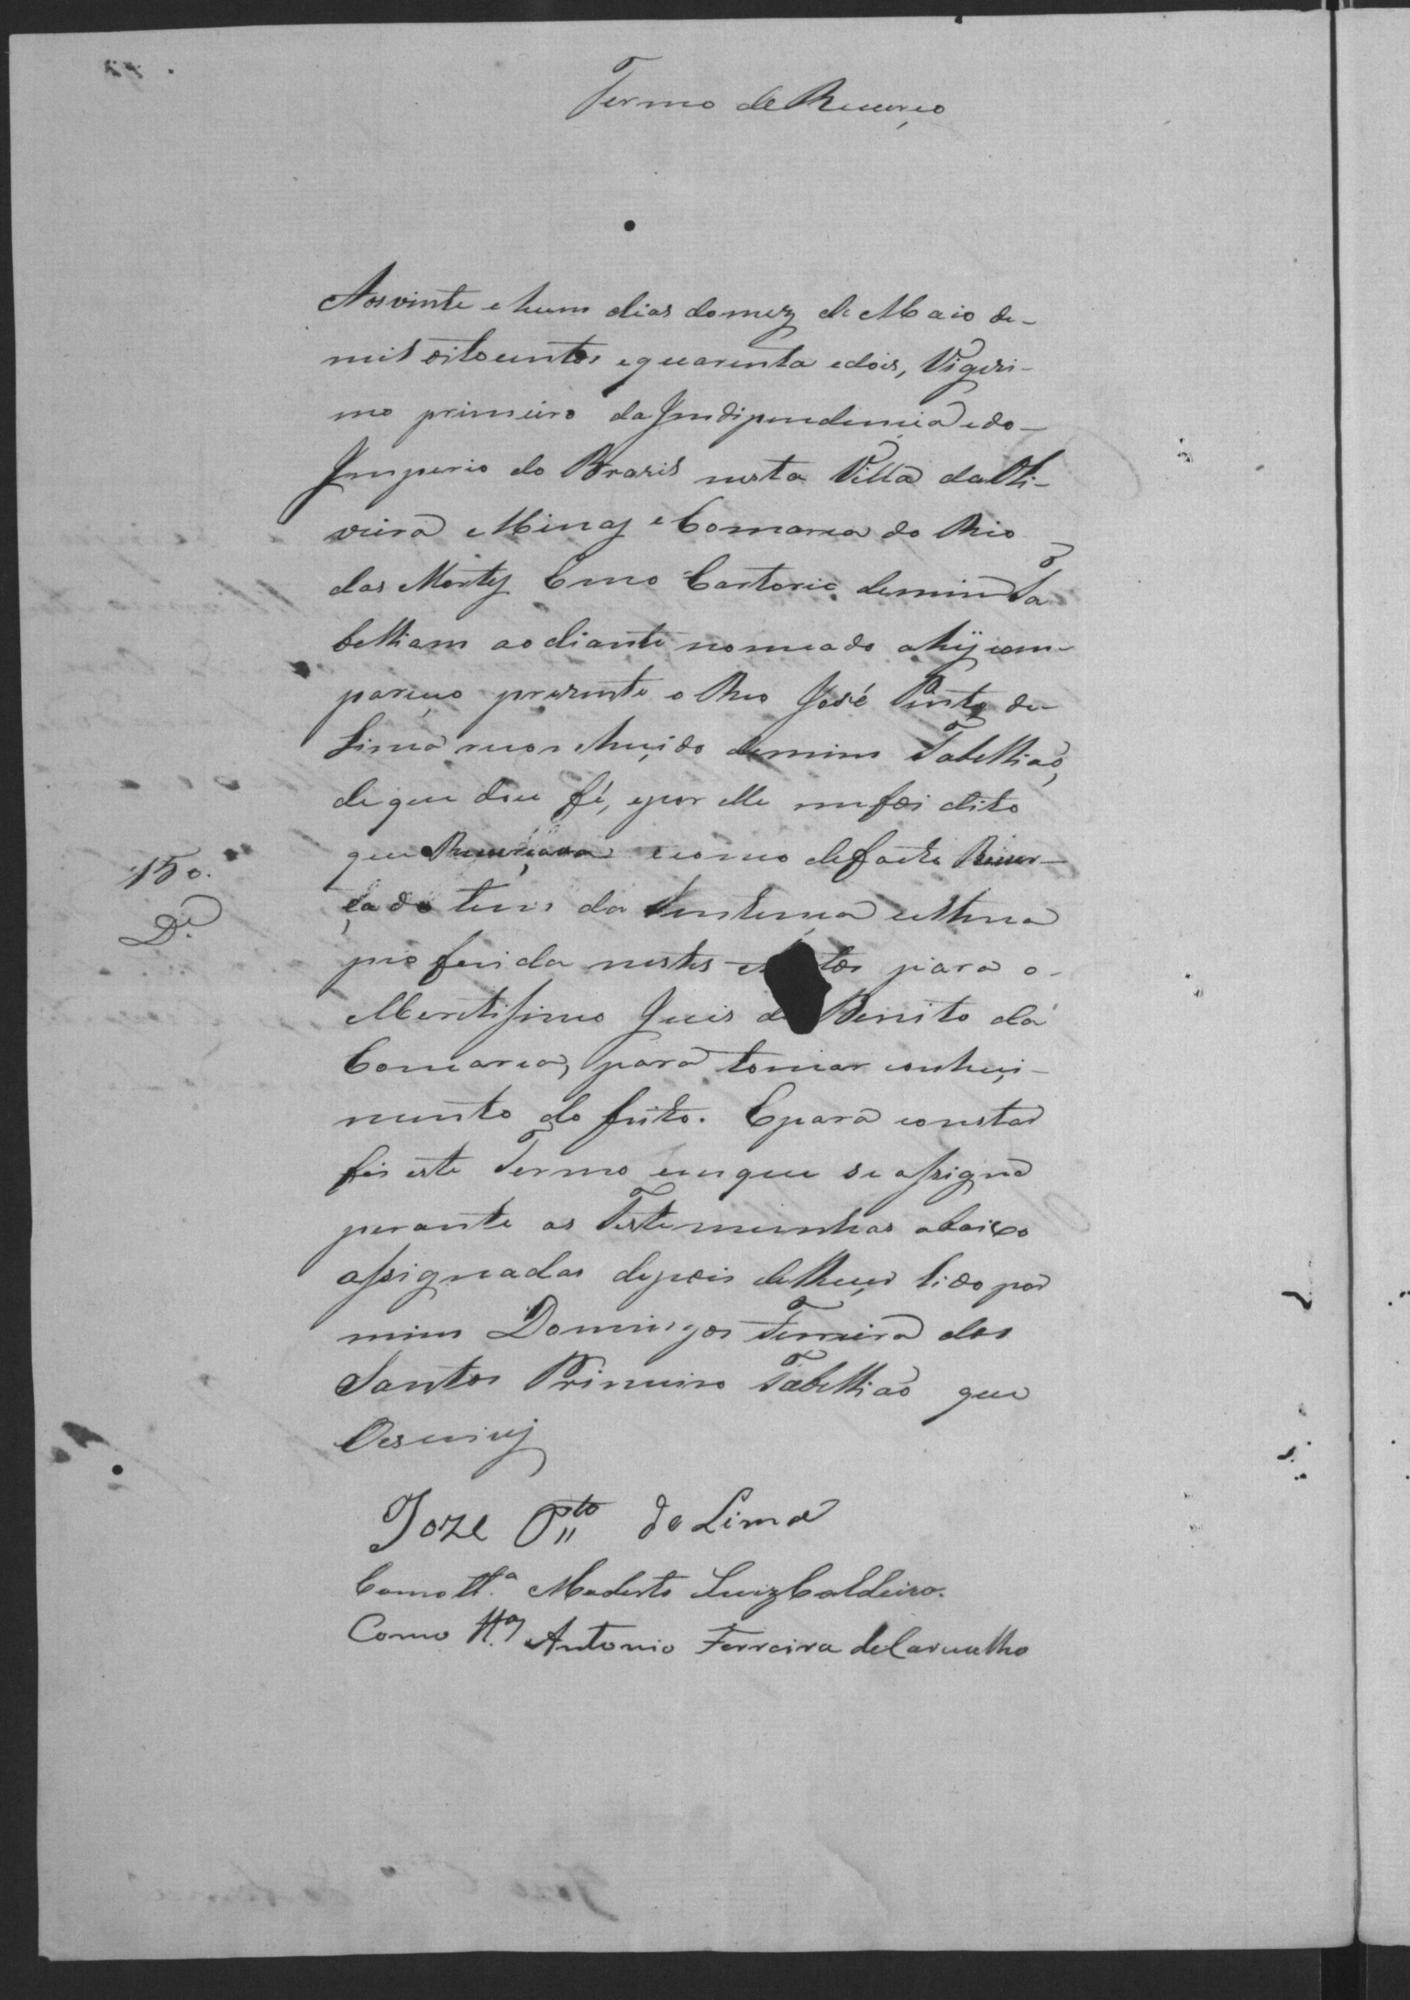 Termo de Recurço
Aos vinte e hum dias do mez de Maio de
mil oito centos e quarenta e dois, Vigesi-
mo primeiro da Indipendencia e do
Imperio do Brasil nesta Villa da Oli-
veira Minas e Comarca do Rio
das Mortes Em o Cartorio de mim Ta
belliam ao diante nomeado ahy com-
pareço prezente o Reo José Pinto de
Lima reconheçido de mim Tabellião,
de que dou fé, e por elle me foi dito
que Recurçava e como de facto Recur-
çado tem da Sentença
150.
D.
proferida nestes para o
Meretissimo Juis de Direito da
Comarca, para tomar conheçi-
mento do feito. E para constar
fis este Termo em que se assigna
perante as Testemunhas abaixo
assignadas depois de lheser lido por
mim Domingos Ferreira dos
Santos Primeiro Tabellião que
O escrivy
Joze Pto de Lima
Como tta. Modesto Luiz Caldeira.
Como tta. Antonio Ferreira de Carvalho